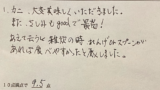 1. カニ、大変美味しくいただきました。
また、だし汁もgoodで最高!
あえて言うなら雑炊の時れんげかスプーンが
あれば食べやすかったと感じました。
10点満点で 9.5点